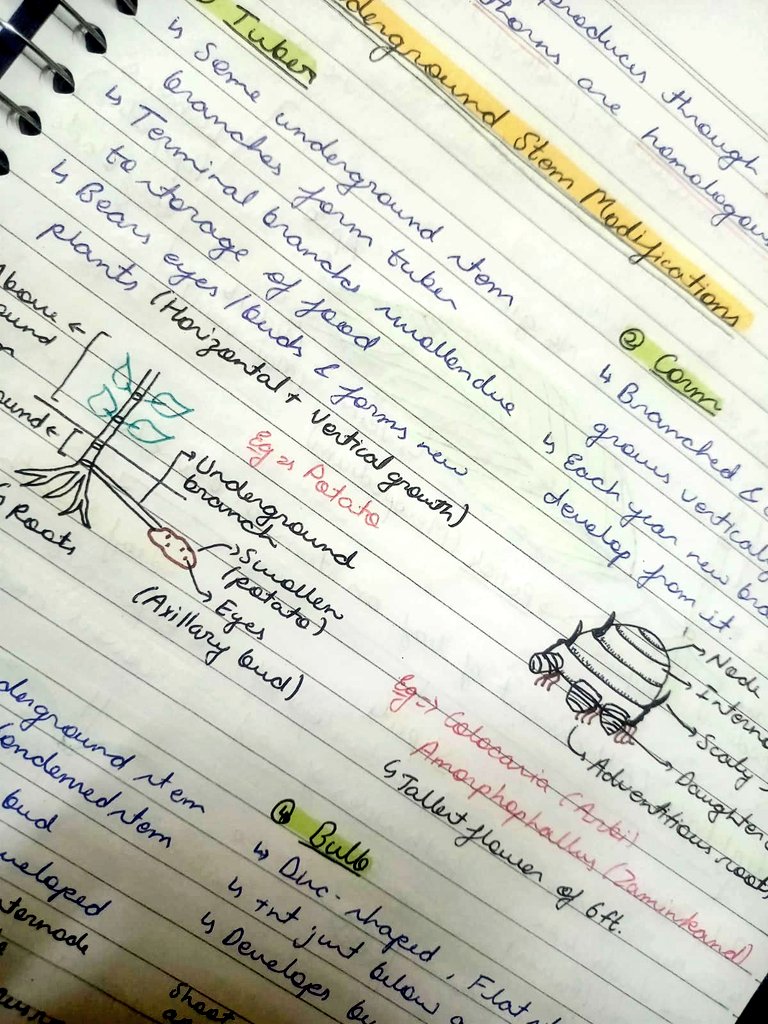 produces through
thorns are homologous
derground Stem Modifications
Tuber
↳ Some underground stem
branches form tuber
↳ Terminal branches swollen due
to storage of food
↳ Bears eyes/buds & forms new
plants (Horizontal + Vertical growth)
Eg => Potato
bove
ound
ound
Roots
Underground
branch
Swollen
(potato)
Eyes
(Axillary bud)
② Corm
↳ Branched &
grows vertically
↳ Each year new bra
develop from it.
Node
Interno
Scaly
Daughter
Adventitious roots
Eg => Colocaria (Arbi)
Amorphophallus (Zaminkand)
↳ Tallest flower of 6ft.
derground stem
ondensed stem
bud
veloped
ternode
④ Bulb
↳ Disc-shaped, Flat
↳ just below
↳ Develops
Shoot